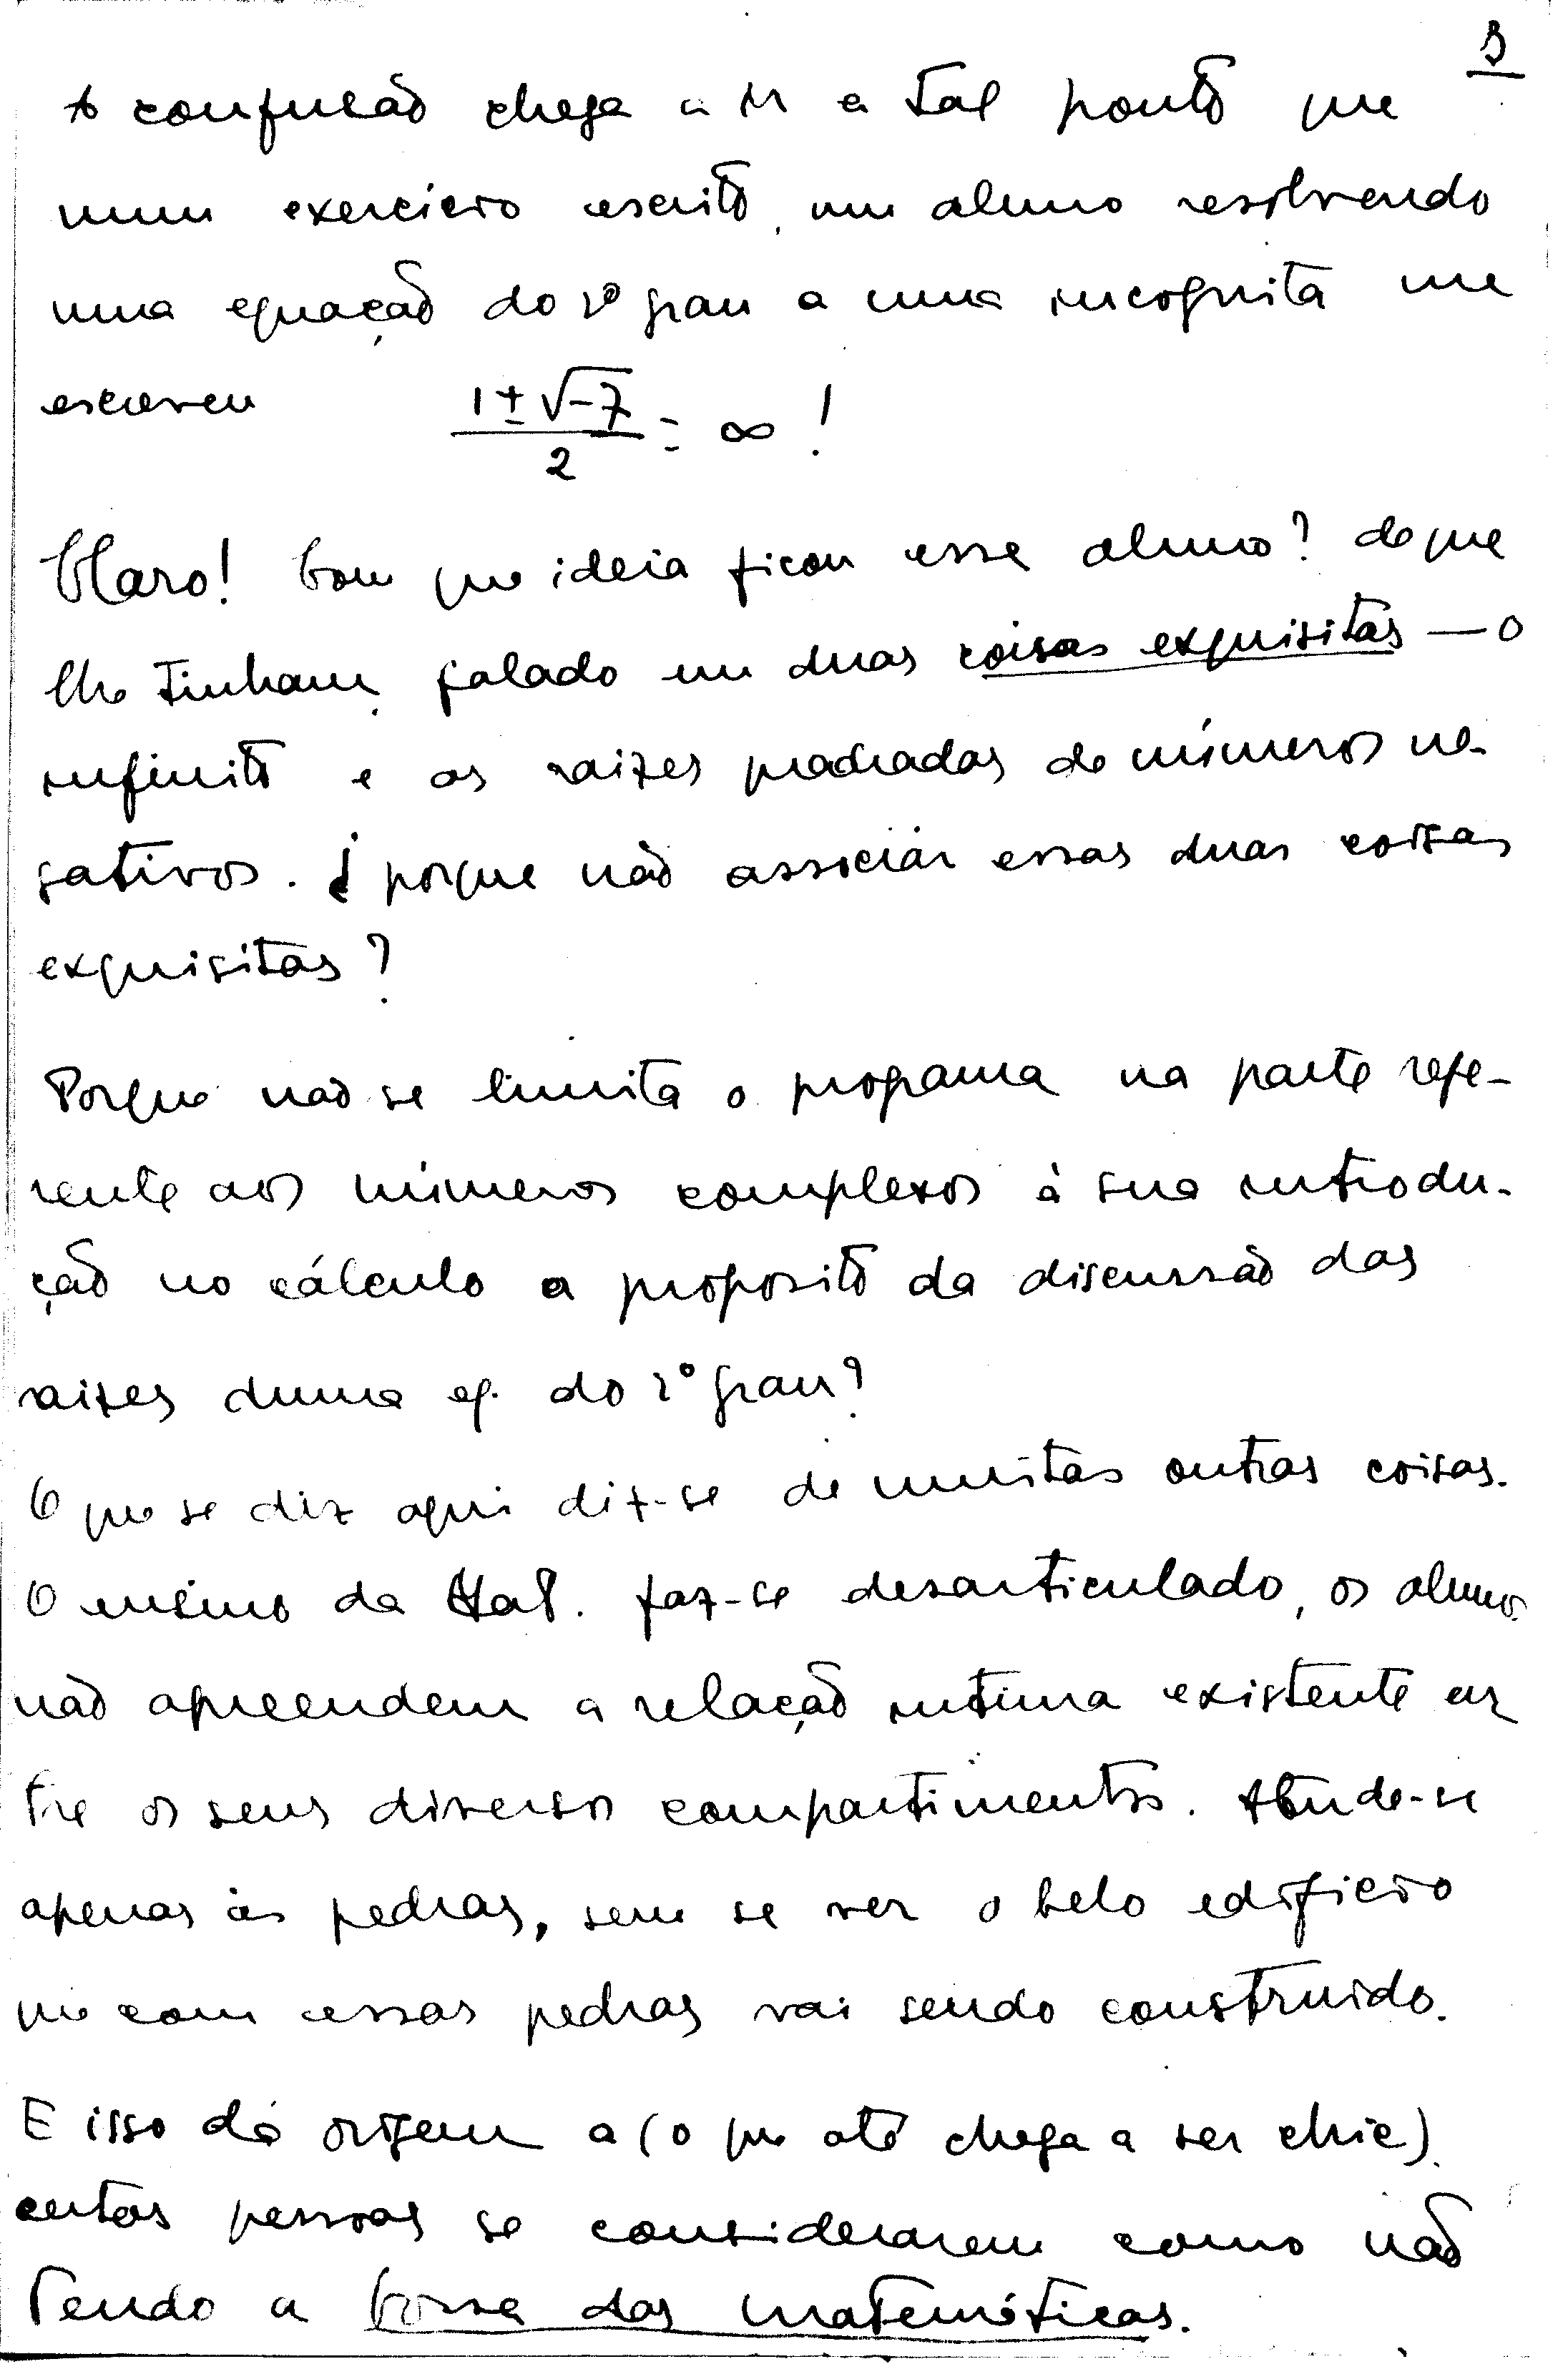 3
A confusão chega a ir a tal ponto que
num exercício escrito, um aluno resolvendo
uma equação do 2º grau a uma incognita me
escreveu (1 ± √-7)/2 = ∞ !
Claro! Com que ideia ficou esse aluno? de que
lhe tinham falado em duas coisas exquisitas — o
infinito e as raizes quadradas de números ne-
gativos. E porque não associar essas duas coisas
exquisitas?
Porque não se limita o programa na parte refe-
rente aos números complexos à sua introdu-
ção no cálculo a proposito da discussão das
raizes duma eq. do 2º grau?
O que se diz aqui diz-se de muitas outras coisas.
O ensino da Mat. faz-se desarticulado, os alunos
não apreendem a relação intima existente en
tre os seus diversos compartimentos. Atende-se
apenas às pedras, sem se ver o belo edificio
que com essas pedras vai sendo construido.
E isso dá origem a (o que até chega a ser chic)
certas pessoas se considerarem como não
tendo a bossa das matemáticas.